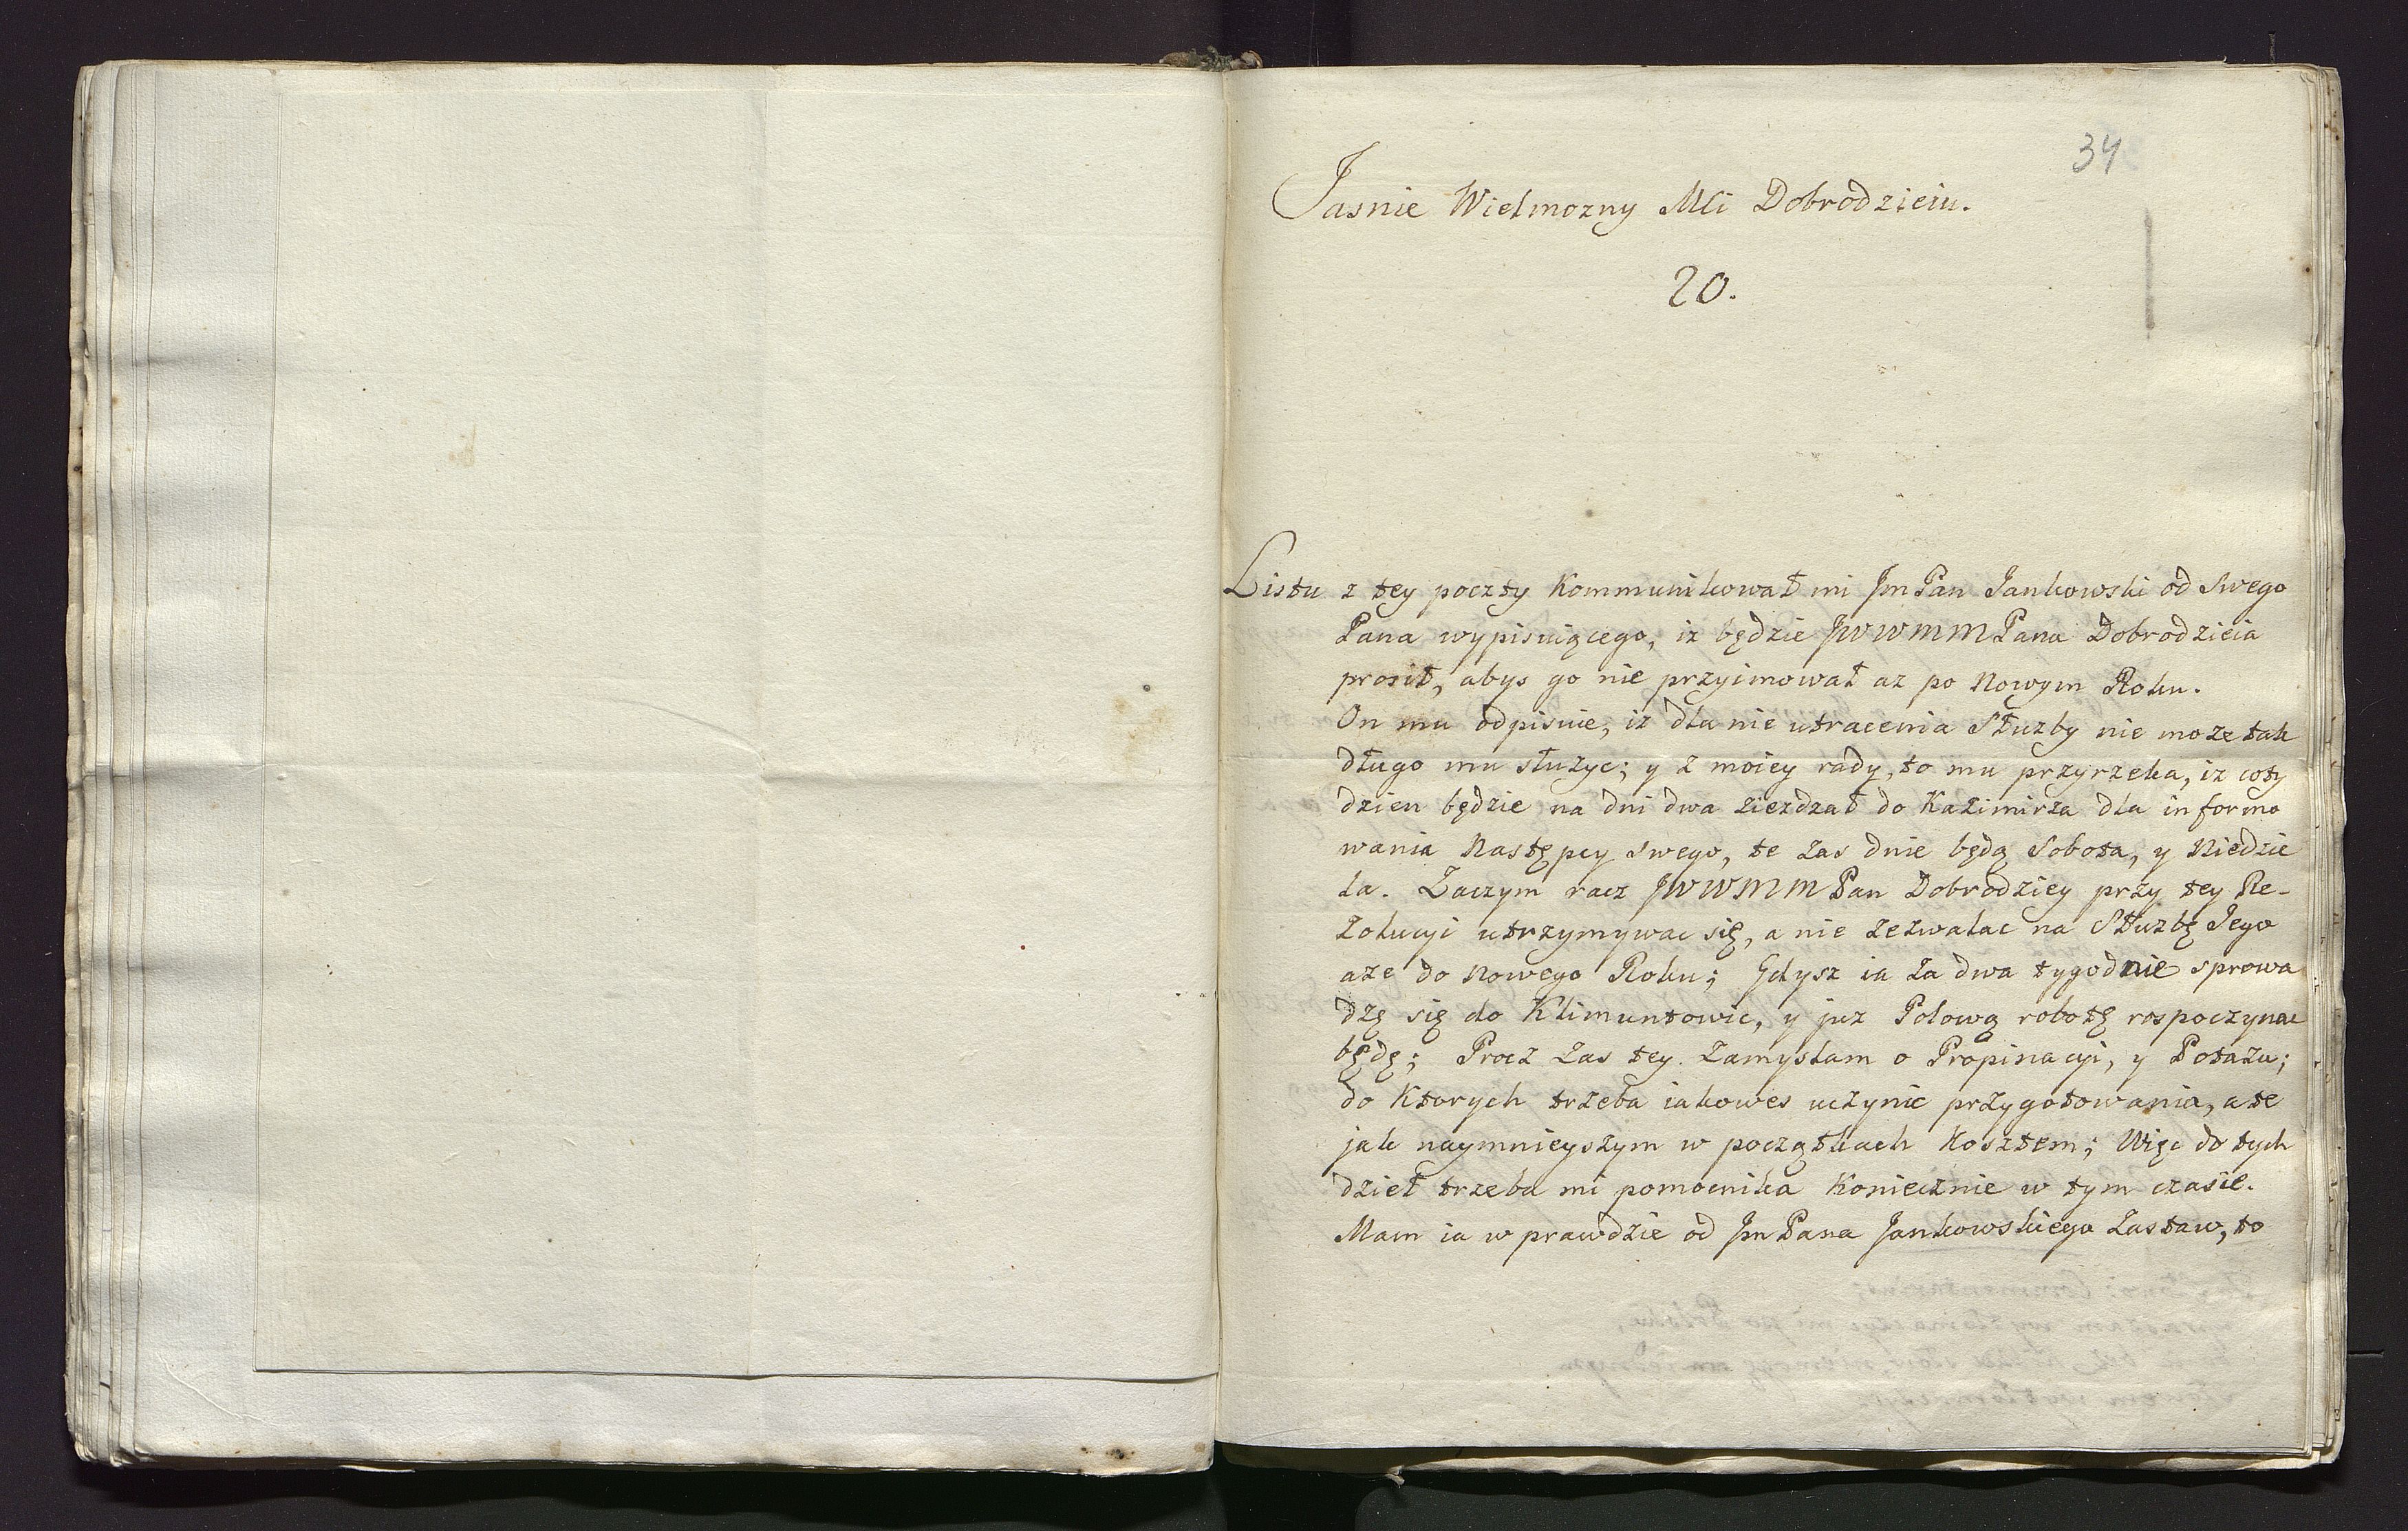 34
Jasnie Wielmozny Mci Dobrodzieiu.
20.
Listu z tey poczty Kommunikował mi Jm Pan Jankowski od Swego
Pana wypisuiącego, iz będzie JWWMMPana Dobrodzieia
prosił, abys go nie przyimował az po Nowym Roku.
On mu odpisuie, iz dla nie utracenia Służby nie moze tak
długo mu słuzyc; y z moiey rady, to mu przyrzeka, iz coty
dzien będzie na dni dwa ziezdzał do Kazimirza dla informo
wania Następcy swego, te zas dnie będą Sobota, y Niedzie
la. Zaczym racz JWWMMPan Dobrodziey przy tey Re-
zolucyi utrzymywac się, a nie zezwalac na Służbę Jego
aze do Nowego Roku; Gdysz ia za dwa tygodnie sprowa
dzę się do Klimuntowic, y juz Polową robotę rospoczynac
będę; Procz zas tey zamyslam o Propinacyi, y Potazu;
do Ktorych trzeba iakowes uczynic przygotowania, a te
jak naymnieyszym w początkach Kosztem; Więc do tych
dzieł trzeba mi pomocnika Koniecznie w tym czasie.
Mam ia w prawdzie od Jm Pana Jankowskiego Zastaw, to